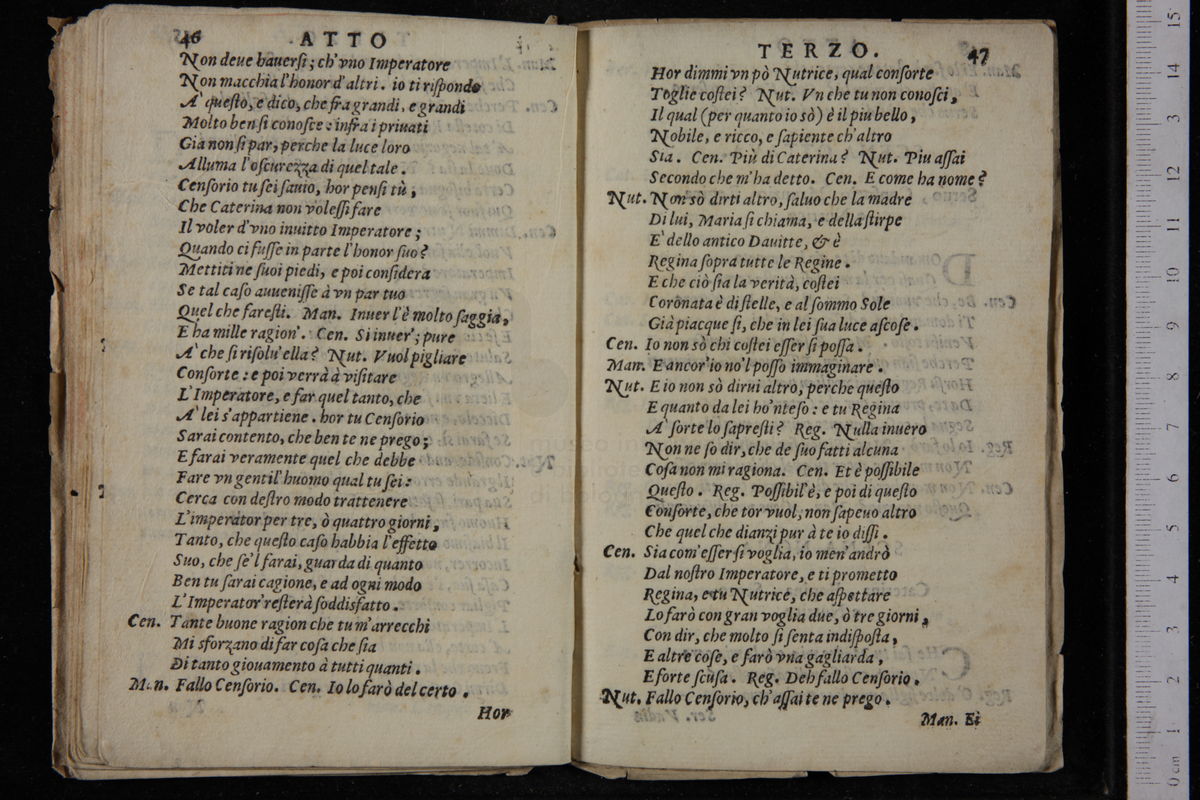 46 ATTO
Non deue hauerſi; ch'vno Imperatore
Non macchia l'honor d'altri. io ti riſpondo
A' queſto, e dico, che fra grandi, e grandi
Molto ben ſi conoſce: infra i priuati
Gia non ſi par, perche la luce loro
Alluma l'oſcurezza di quel tale.
Cenſorio tu ſei ſauio, hor penſi tù,
Che Caterina non voleſſi fare
Il voler d'vno inuitto Imperatore;
Quando ci fuſſe in parte l'honor ſuo?
Mettiti ne ſuoi piedi, e poi conſidera
Se tal caſo aueniſſe à vn par tuo
Quel che fareſti. Man. Inuer l'è molto ſaggia,
E ha mille ragion'. Cen. Si inuer'; pure
A' che ſi riſolu' ella? Nut. Vuol pigliare
Conſorte: e poi verrà à viſitare
L'Imperatore, e far quel tanto, che
A' lei s'appartiene. hor tu Cenſorio
Sarai contento, che ben te ne prego;
E farai veramente quel che debbe
Fare vn gentil'huomo qual tu ſei:
Cerca con deſtro modo trattenere
L'imperator per tre, ò quattro giorni,
Tanto, che queſto caſo habbia l'effetto
Suo, che ſe'l farai, guarda di quanto
Ben tu ſarai cagione, e ad ogni modo
L'Imperator' reſterà ſoddisfatto.
Cen. Tante buone ragion che tu m'arrecchi
Mi sforzano di far coſa che ſia
Di tanto giouamento à tutti quanti.
Man. Fallo Cenſorio. Cen. Io lo farò del certo.
Hor
TERZO. 47
Hor dimmi vn pò Nutrice, qual conſorte
Toglie coſtei? Nut. Vn che tu non conoſci,
Il qual (per quanto io sò) è il piu bello,
Nobile, e ricco, e ſapiente ch'altro
Sia. Cen. Più di Caterina? Nut. Piu aſſai
Secondo che m'ha detto. Cen. E come ha nome?
Nut. Non sò dirti altro, ſaluo che la madre
Di lui, Maria ſi chiama, e della ſtirpe
E' dello antico Dauitte, & è
Regina ſopra tutte le Regine.
E che ciò ſia la verità, coſtei
Coronata è di ſtelle, e al ſommo Sole
Già piacque ſi, che in lei ſua luce aſcoſe.
Cen. Io non sò chi coſtei eſſer ſi poſſa.
Man. E ancor' io no'l poſſo immaginare.
Nut. E io non sò dirui altro, perche queſto
E quanto da lei ho'nteſo: e tu Regina
A' ſorte lo ſapreſti? Reg. Nulla inuero
Non ne ſo dir, che de ſuo fatti alcuna
Coſa non mi ragiona. Cen. Et è poſſibile
Queſto. Reg. Poſſibil'è, e poi di queſto
Conſorte, che tor vuol, non ſapeuo altro
Che quel che dianzi pur à te io diſſi.
Cen. Sia com' eſſer ſi voglia, io men' andrò
Dal noſtro Imperatore, e ti prometto
Regina, e tu Nutrice, che aſpettare
Lo farò con gran voglia due, ò tre giorni,
Con dir, che molto ſi ſenta indiſpoſta,
E altre coſe, e farò vna gagliarda,
E forte ſcuſa. Reg. Deh fallo Cenſorio.
Nut. Fallo Cenſorio, ch'aſſai te ne prego.
Man. Ei